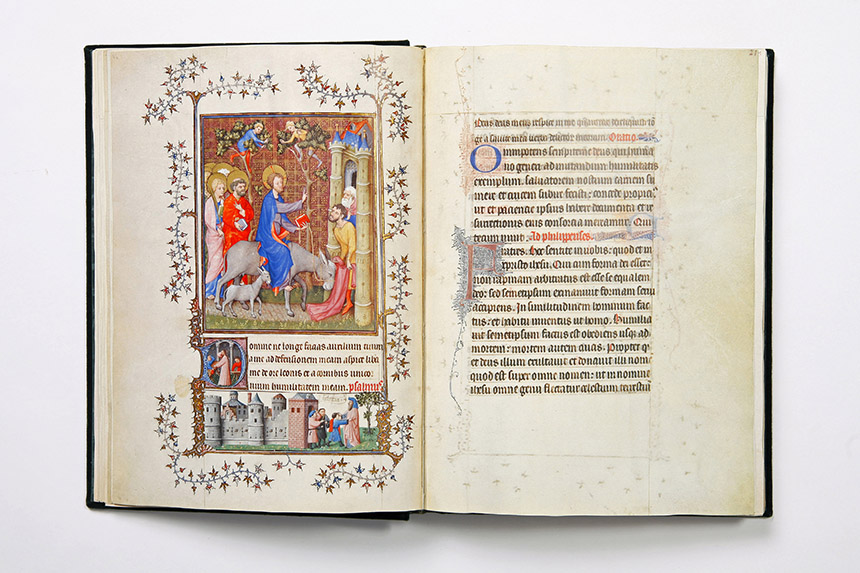 Domine ne longe facias auxilium tuum
a me ad defensionem meam aspice liba
me de ore leonis et a cornibus unicor
nium humilitatem meam. psalmus
Deus deus meus respice in me quare me dereliquisti lon
ge a salute mea verba delictorum meorum. Oratio.
Omnipotens sempiterne deus qui huma
no generi ad imitandum humilitatis
exemplum. salvatorem nostrum carnem su
mere et crucem subire fecisti: concede propici
ut et paciencie ipsius habere documenta et re
surrectionis eius consorcia mereamur. Qui
tecum vivit. Ad philippenses.
Fratres. Hoc sentite in vobis: quod et in
xpisto ihesu. Qui cum forma dei esset:
non rapinam arbitratus est esse se equalem
deo: sed semetipsum exinanivit formam servi
accipiens. In similitudinem hominum fac
tus: et habitu inventus ut homo. Humilia
vit semetipsum factus est obediens usque ad
mortem: mortem autem crucis. Propter q
et deus illum exaltavit et donavit illi nomen
quod est super omne nomen: ut in nomine
ihesu omne genu flectatur celestium terestriu